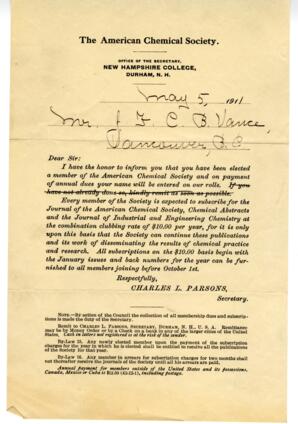 The American Chemical Society.
OFFICE OF THE SECRETARY,
NEW HAMPSHIRE COLLEGE,
DURHAM, N. H.
May 5, 1911
Mr. J F C B Vance,
Vancouver, B.C.
Dear Sir:
I have the honor to inform you that you have been elected
a member of the American Chemical Society and on payment
of annual dues your name will be entered on our rolls. If you
have not already done so, kindly remit as soon as possible.
Every member of the Society is expected to subscribe for the
Journal of the American Chemical Society, Chemical Abstracts
and the Journal of Industrial and Engineering Chemistry at
the combination clubbing rate of $10.00 per year, for it is only
upon this basis that the Society can continue these publications
and its work of disseminating the results of chemical practice
and research. All subscriptions on the $10.00 basis begin with
the January issues and back numbers for the year can be fur-
nished to all members joining before October 1st.
Respectfully,
CHARLES L. PARSONS,
Secretary.
NOTE.—By action of the Council the collection of all membership dues and subscrip-
tions is made the duty of the Secretary.
Remit to CHARLES L. PARSONS, SECRETARY, DURHAM, N. H., U. S. A. Remittances
may be by Money Order or by a Check or Draft in any of the larger cities of the United
States. Cash in letters not registered is at the risk of the sender.
By-Law 15. Any newly elected member upon the payment of the subscription
charges for the year in which he is elected shall be entitled to receive all the publications
of the Society for that year.
By-Law 16. Any member in arrears for subscription charges for two months shall
not thereafter receive the Journals until all his arrears are paid.
Annual payment for members outside of the United States and its possessions,
Canada, Mexico or Cuba is
including postage.